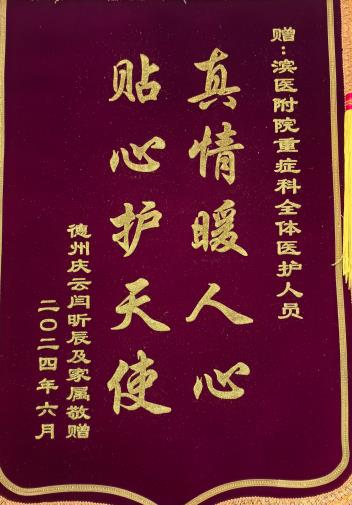 赠：滨医附院重症科全体医护人员
真情暖人心
贴心护天使
德州庆云闫昕辰及家属敬赠
二〇二四年六月